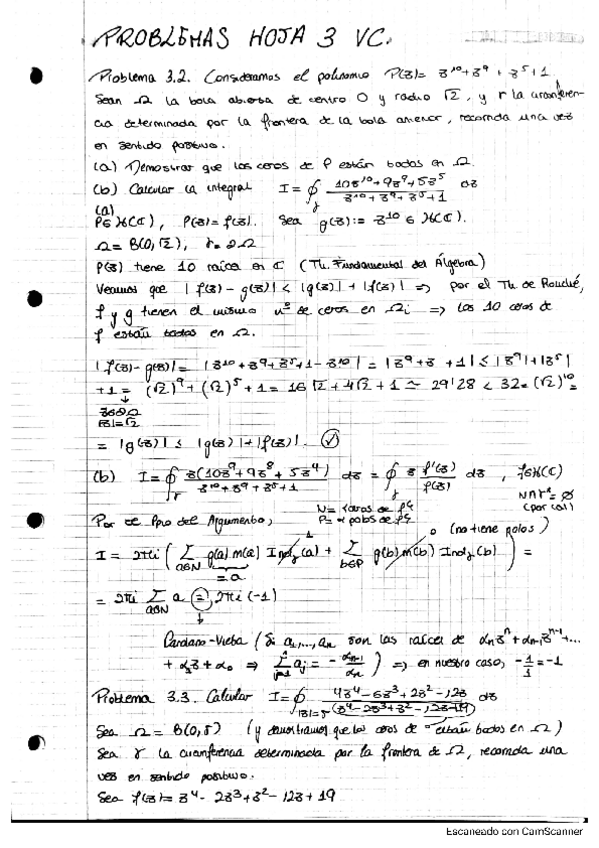 PROBLEMAS HOJA 3 VC.
Problema 3.2. Consideramos el polinomio P(z) = z^10 + z^9 + z^5 + 1.
Sean Ω la bola abierta de centro 0 y radio √2, y γ la circunferen-
cia determinada por la frontera de la bola anterior, recorrida una vez
en sentido positivo.
(a) Demostrar que los ceros de P están todos en Ω.
(b) Calcular la integral I = ∮_γ (10z^10 + 9z^9 + 5z^5)/(z^10 + z^9 + z^5 + 1) dz
(a)
P ∈ H(ℂ), P(z) = f(z). Sea g(z) := z^10 ∈ H(ℂ).
Ω = B(0, √2), γ = ∂Ω
P(z) tiene 10 raíces en ℂ (Th. Fundamental del Álgebra)
Veamos que |f(z) - g(z)| < |g(z)| + |f(z)| ⇒ por el Th de Rouché,
f y g tienen el mismo nº de ceros en Ω; ⇒ los 10 ceros de
f están todos en Ω.
|f(z) - g(z)| = |z^10 + z^9 + z^5 + 1 - z^10| = |z^9 + z + 1| ≤ |z^9| + |z^5|
+ 1 = (√2)^9 + (√2)^5 + 1 = 16√2 + 4√2 + 1 ≃ 29'28 < 32 = (√2)^10 =
z∈∂Ω
|z|=√2
= |g(z)| ≤ |g(z)| + |f(z)|. ✓
(b) I = ∮_γ z(10z^9 + 9z^8 + 5z^4)/(z^10 + z^9 + z^5 + 1) dz = ∮_γ z f'(z)/f(z) dz, f∈H(ℂ)
N∩γ* = ∅
(por (a))
N = {ceros de f}
Por el Ppio del Argumento, P = {polos de f}
0 (no tiene polos)
I = 2πi ( ∑_{a∈N} g(a) m(a) Ind_γ(a) + ∑_{b∈P} g(b) m(b) Ind_γ(b) ) =
= a
= 2πi ∑_{a∈N} a = 2πi (-1)
Cardano-Vieta (Si a_1, ..., a_n son las raíces de α_n z^n + α_{n-1} z^{n-1} + ...
+ α_1 z + α_0 ⇒ ∑_{j=1}^n a_j = - α_{n-1}/α_n) ⇒ en nuestro caso, -1/1 = -1
Problema 3.3. Calcular I = ∮_{|z|=5} (4z^4 - 6z^3 + 2z^2 - 12z)/(z^4 - 2z^3 + z^2 - 12z + 19) dz
Sea Ω = B(0, 5) (y demostramos que los ceros de están todos en Ω)
Sea γ la circunferencia determinada por la frontera de Ω, recorrida una
vez en sentido positivo.
Sea f(z) = z^4 - 2z^3 + z^2 - 12z + 19
Escaneado con CamScanner